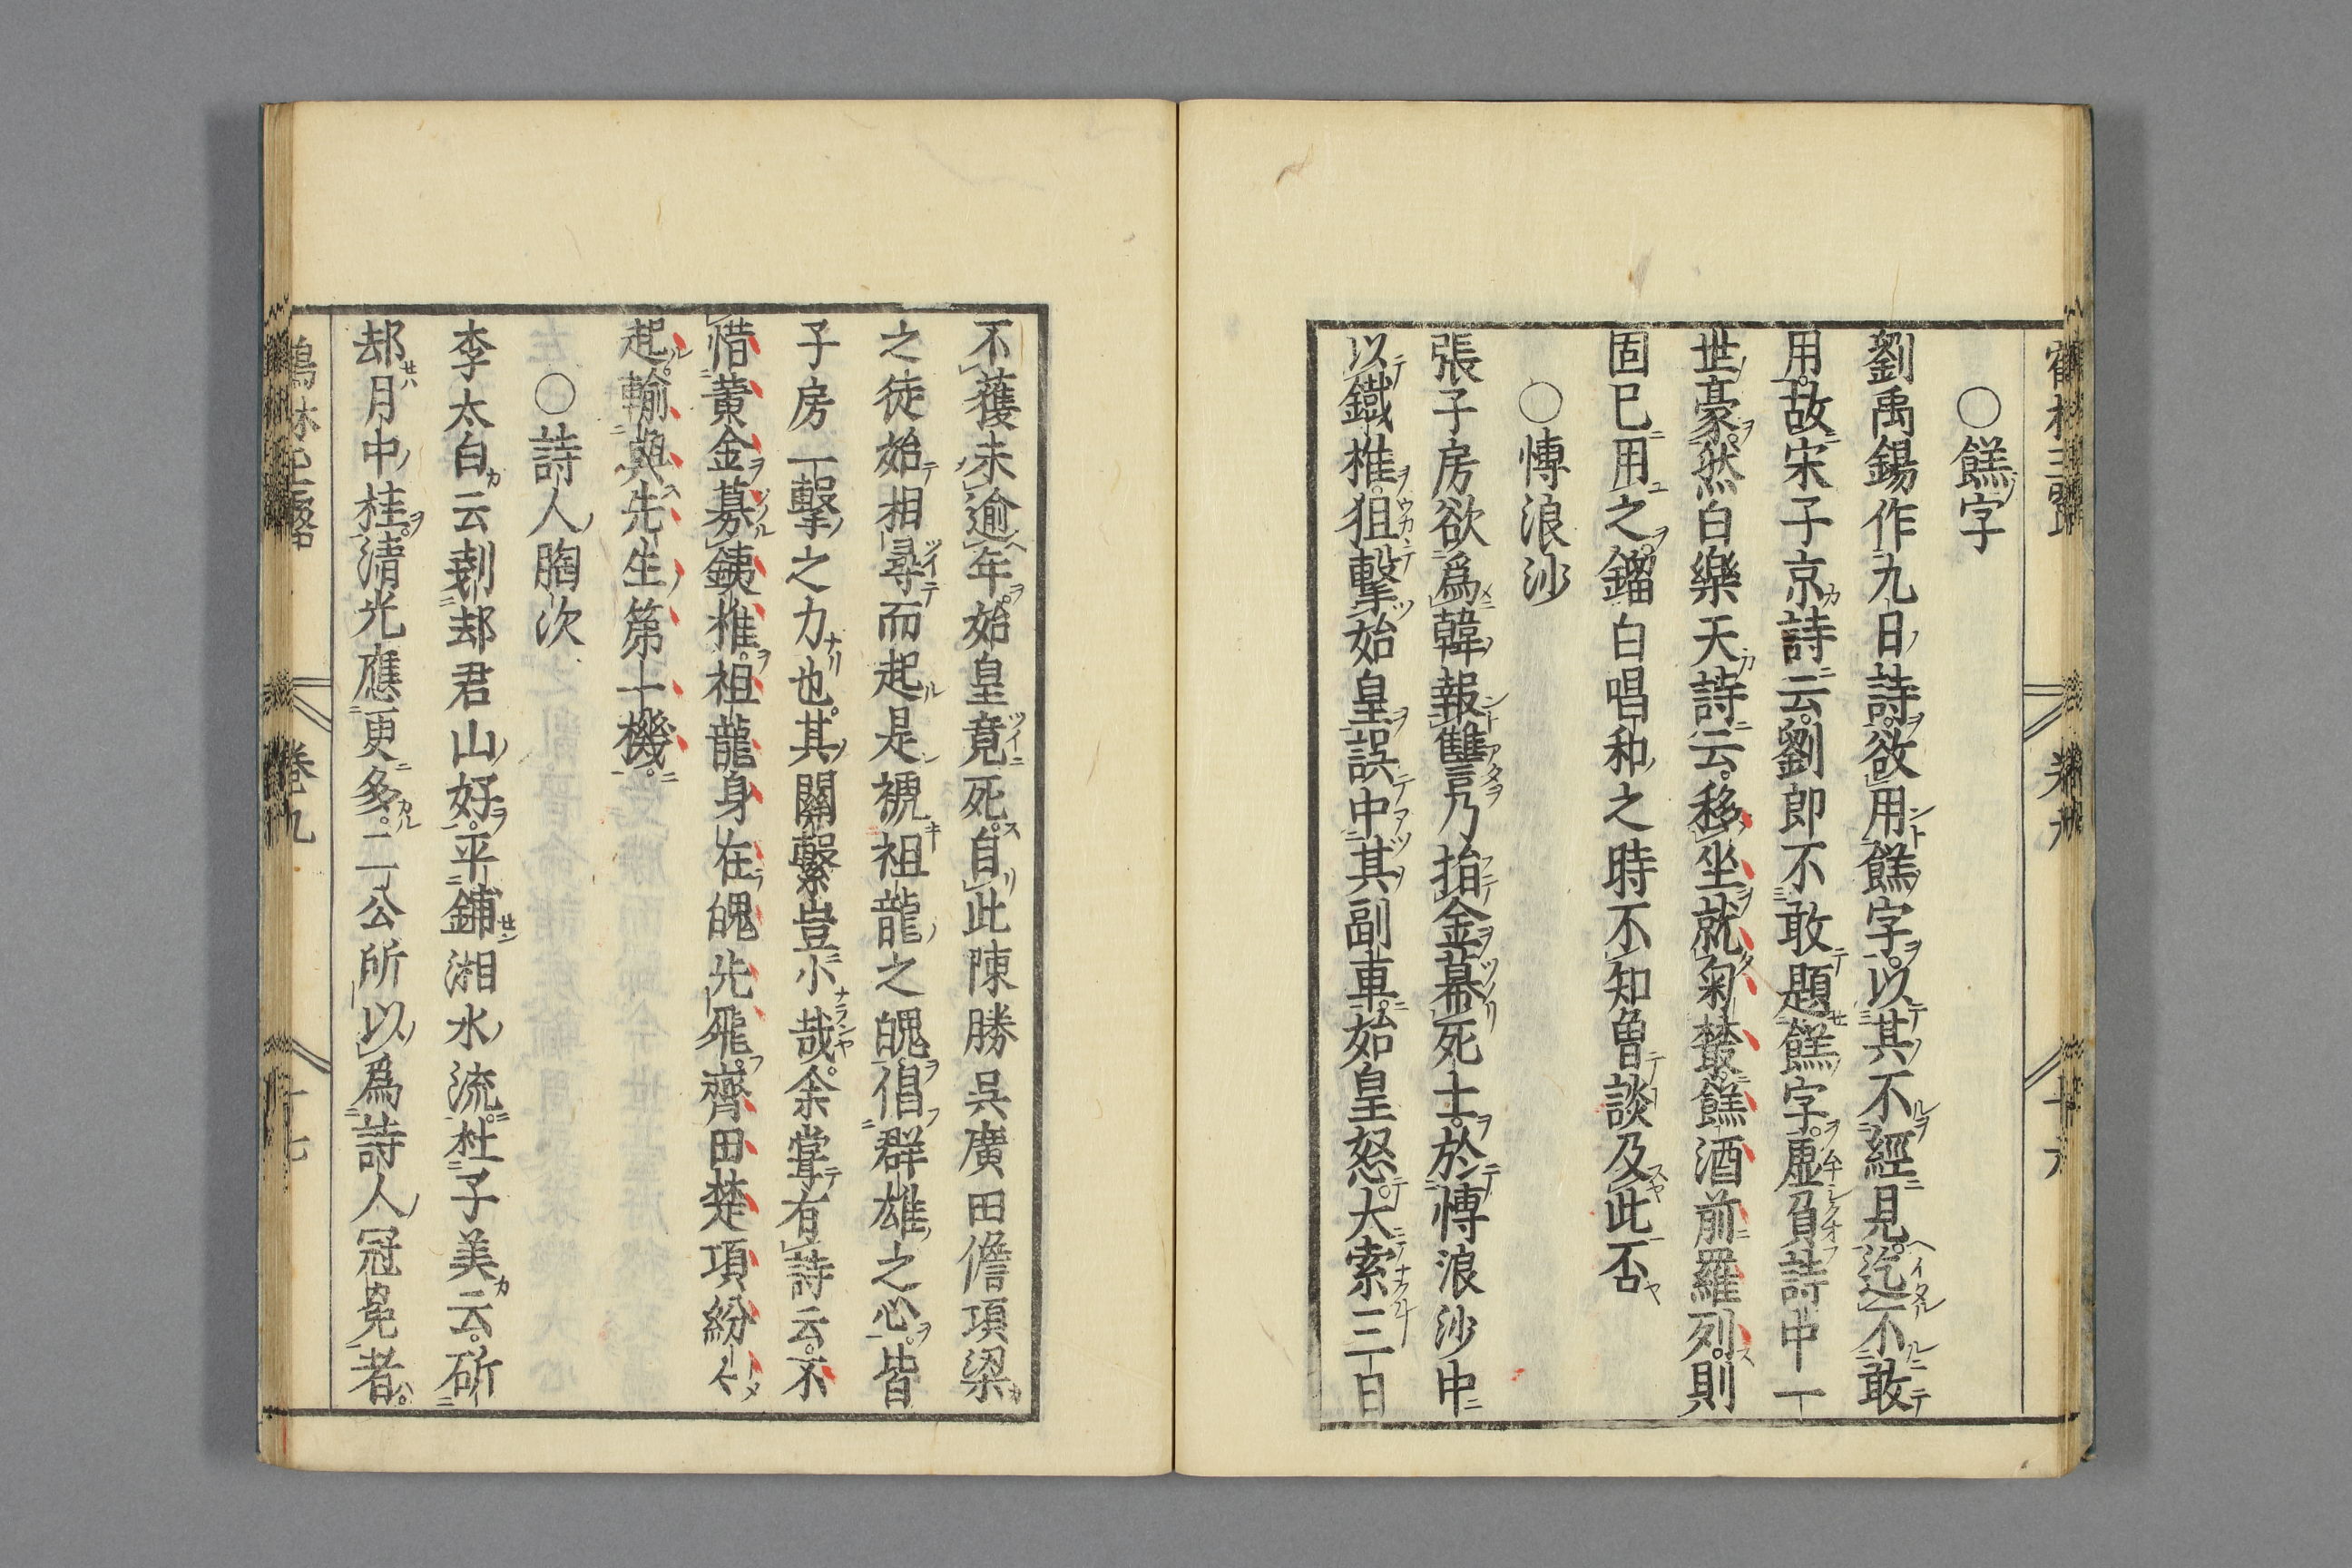 ○餻字
劉禹錫作九日詩欲用餻字以其不經見迄不敢
用故宋子京詩云劉郎不敢題餻字虛負詩中一
世豪然白樂天詩云移坐就菊叢餻酒前羅列則
固已用之鎦白唱和之時不知曽談及此否
○慱浪沙
張子房欲爲韓報讐乃捐金募死士於慱浪沙中
以鐵椎狙擊始皇誤中其副車始皇怒大索三日
不獲未逾年始皇竟死自此陳勝呉廣田儋項梁
之徒始相尋而起是褫祖龍之魄倡群雄之心皆
子房一擊之力也其關繫豈小哉余嘗有詩云不
惜黄金募銕椎祖龍身在魄先飛齊田楚項紛々
起輸與先生第一機
○詩人胸次
李太白云剗却君山好平鋪湘水流杜子美云斫
却月中桂清光應更多二公所以爲詩人冠冕者
卷九
十七